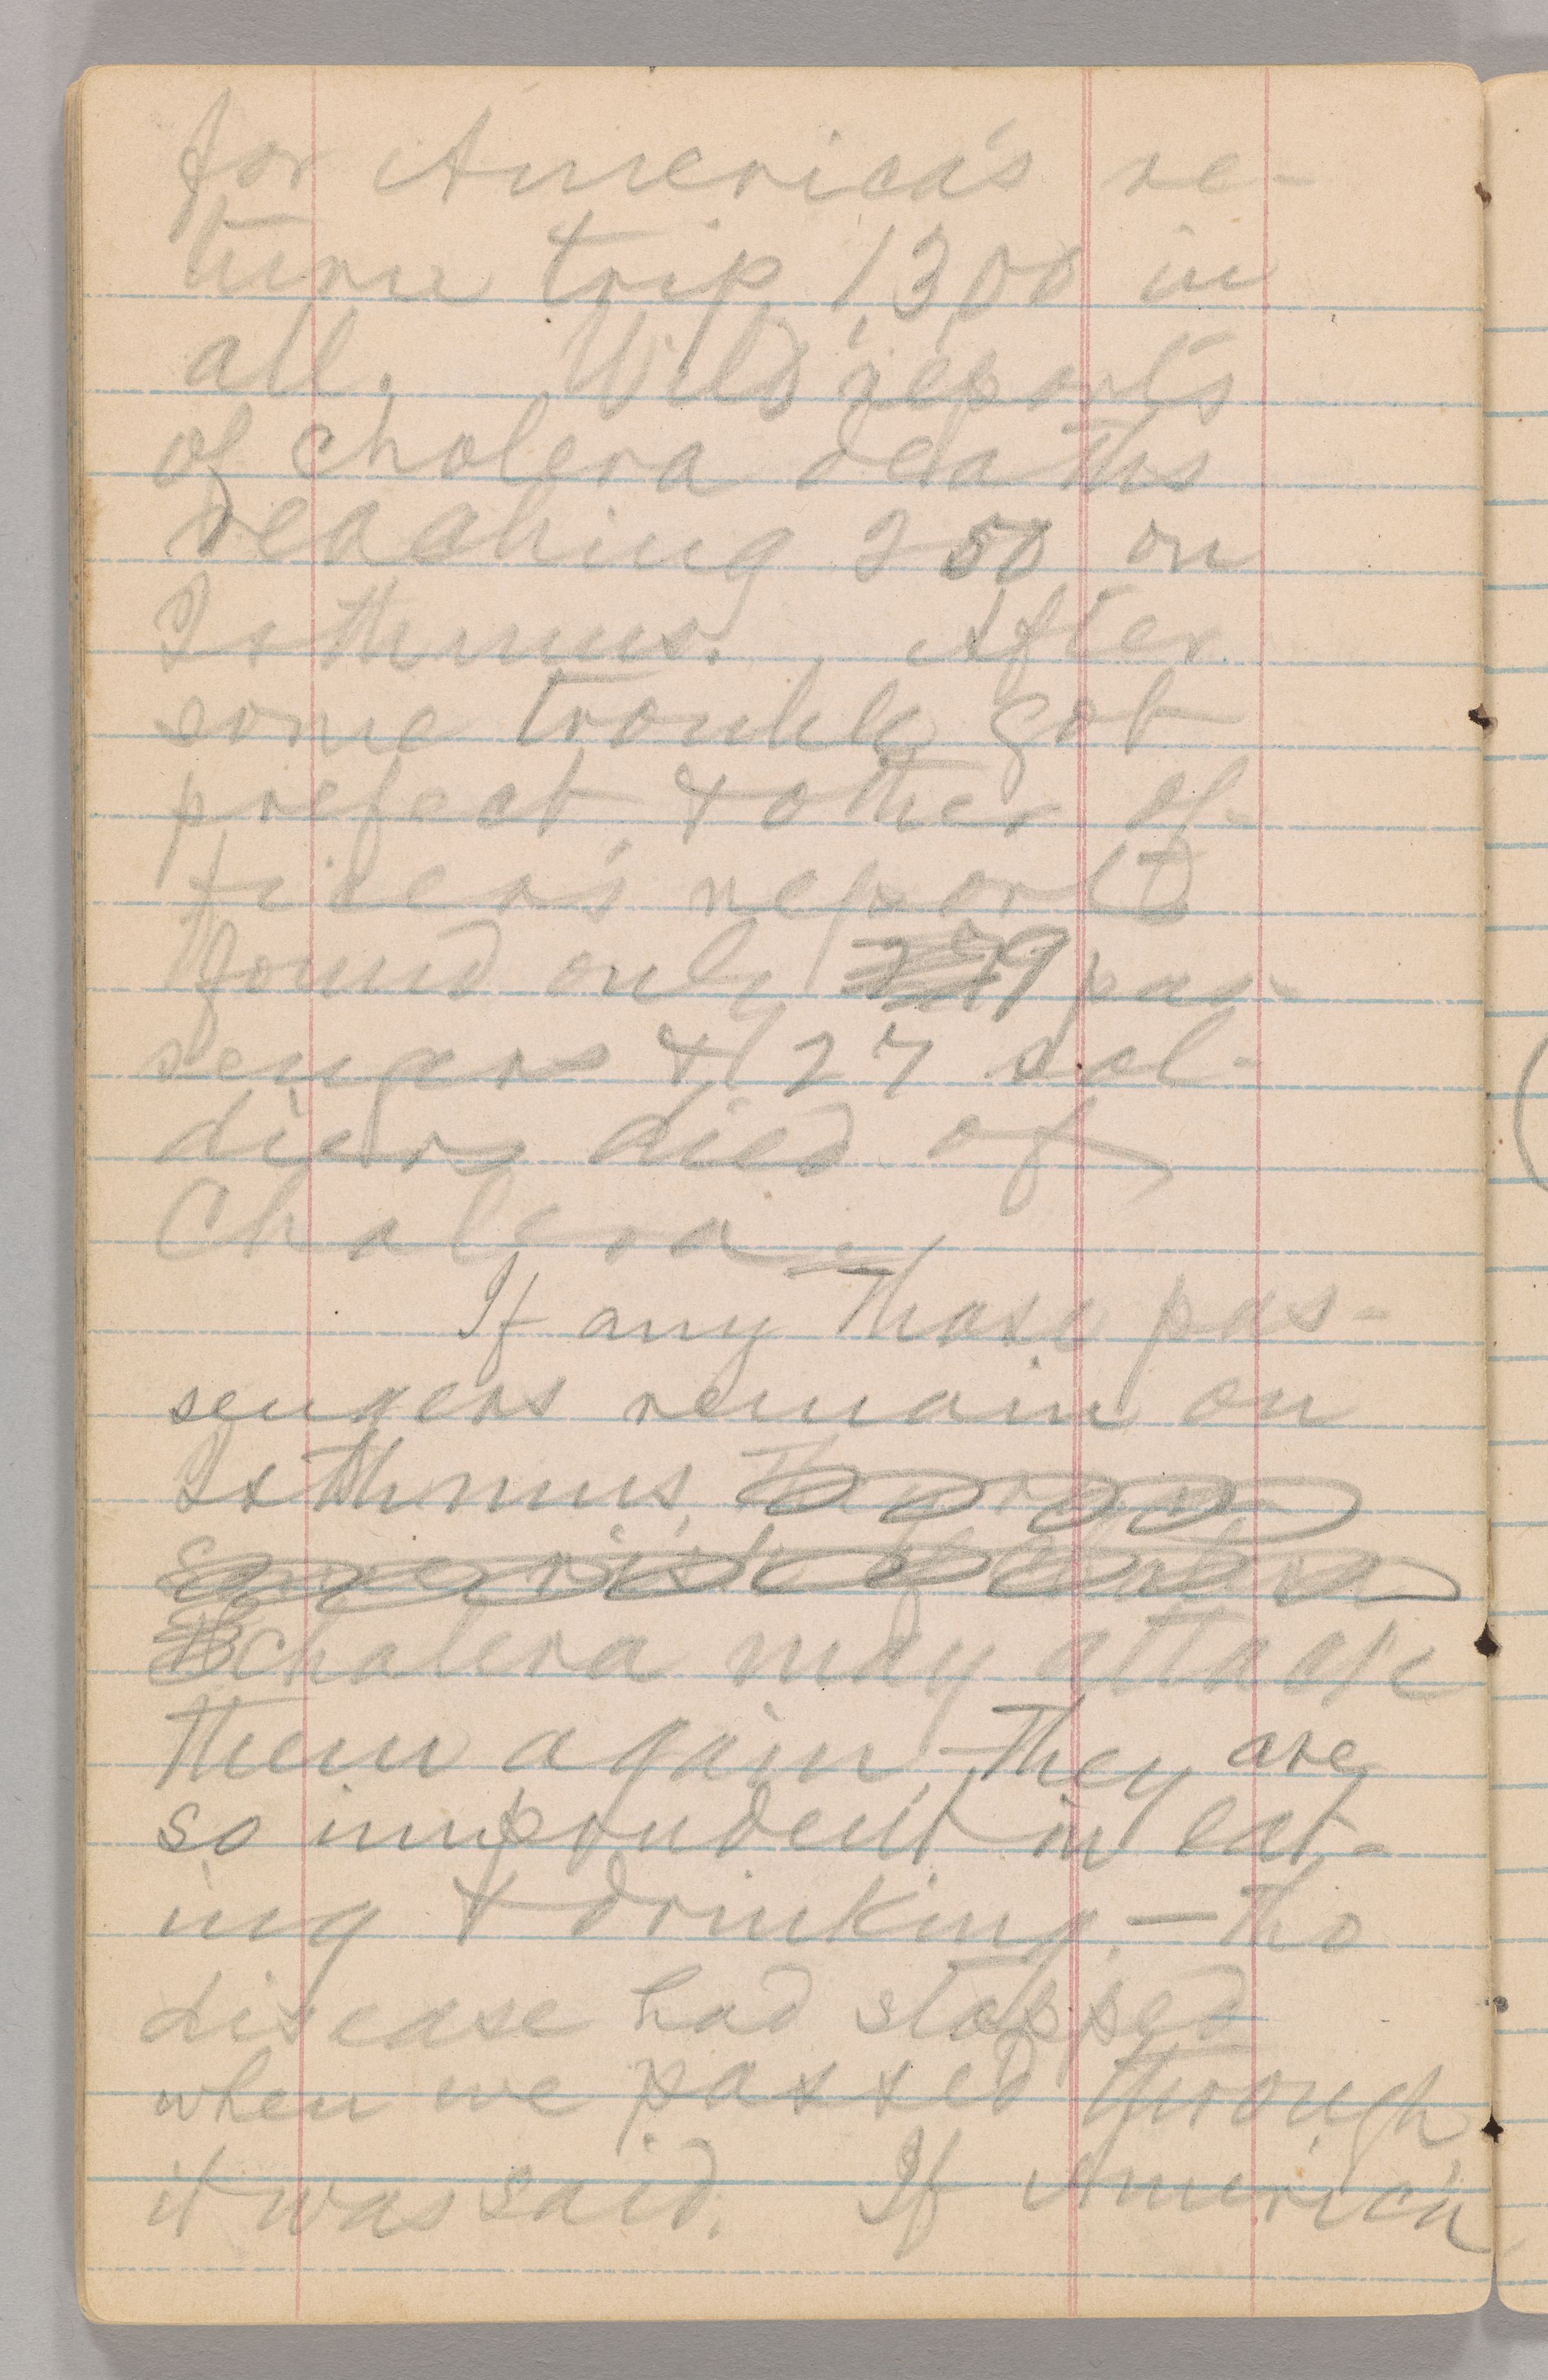 for America's re-
turn trip, 1300 in
all. Wild reports
of cholera deaths
reaching 250 on
Isthmus. After
some trouble got
prefect & other of-
ficer's report &
found only 9 pas-
sengers & 27 sol-
diers died of
Cholera.
If any those pas-
sengers remain on
Isthmus
cholera may attack
them again—they are
so imprudent in eat-
ing & drinking,—tho
disease had stopped
when we passed through
it was said. If America